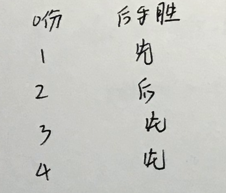 0份 后手胜
1 先
2 后
3 先
4 先